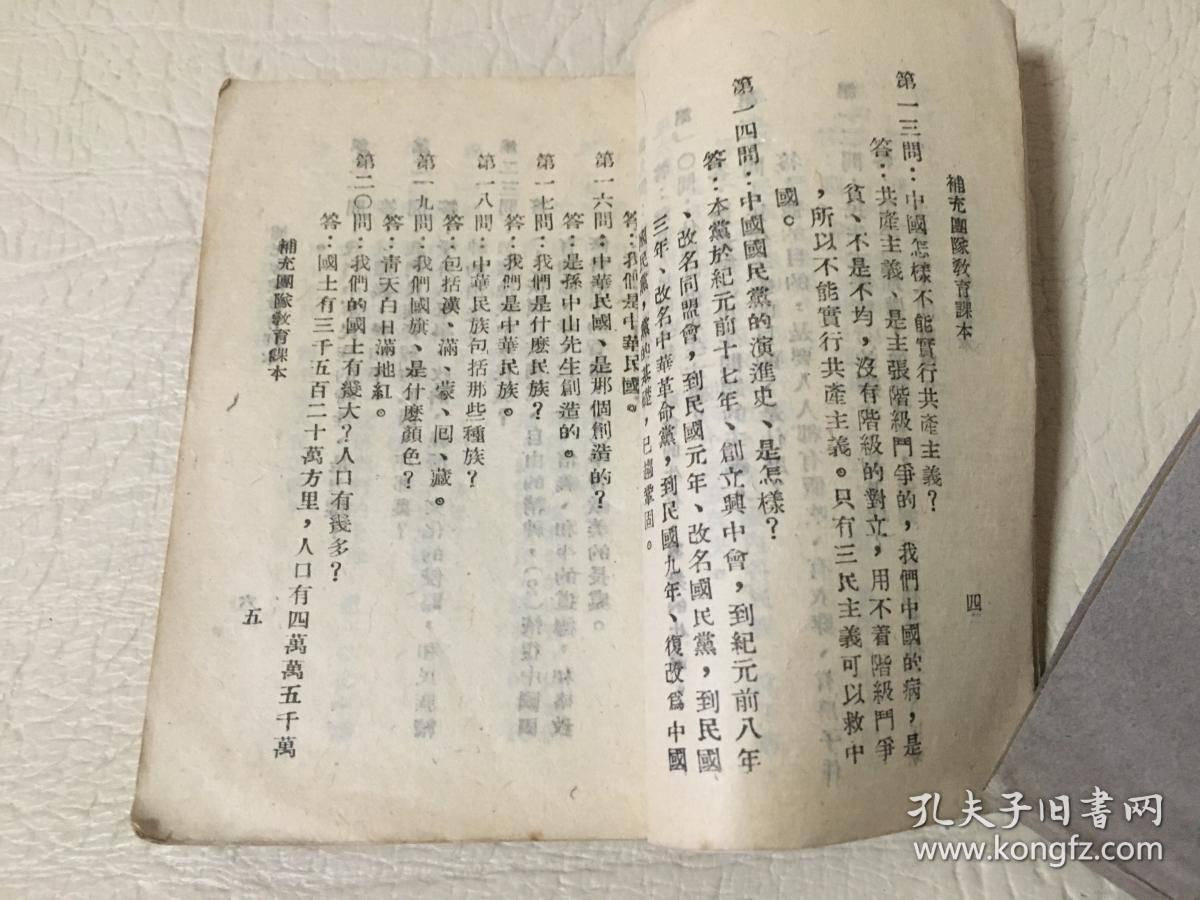 補充團隊敎育課本
四
第一三問：中國怎樣不能實行共產主義？
答：共產主義、是主張階級鬥爭的，我們中國的病，是
貧、不是不均，沒有階級的對立，用不着階級鬥爭
，所以不能實行共產主義。只有三民主義可以救中
國。
第一四問：中國國民黨的演進史、是怎樣？
答：本黨於紀元前十七年、創立興中會，到紀元前八年
、改名同盟會，到民國元年、改名國民黨，到民國
三年、改名中華革命黨，到民國九年、復改爲中國
國民黨，黨的基礎，已趨鞏固。
答：我們是中華民國。
第一六問：中華民國、是那個創造的？
答：是孫中山先生創造的。
第一七問：我們是什麼民族？
答：我們是中華民族。
第一八問：中華民族包括那些種族？
答：包括漢、滿、蒙、回、藏。
第一九問：我們國旗、是什麼顏色？
答：靑天白日滿地紅。
第二〇問：我們的國土有幾大？人口有幾多？
答：國土有三千五百二十萬方里，人口有四萬萬五千萬
補充團隊敎育課本
五
孔夫子旧书网
www.kongfz.com